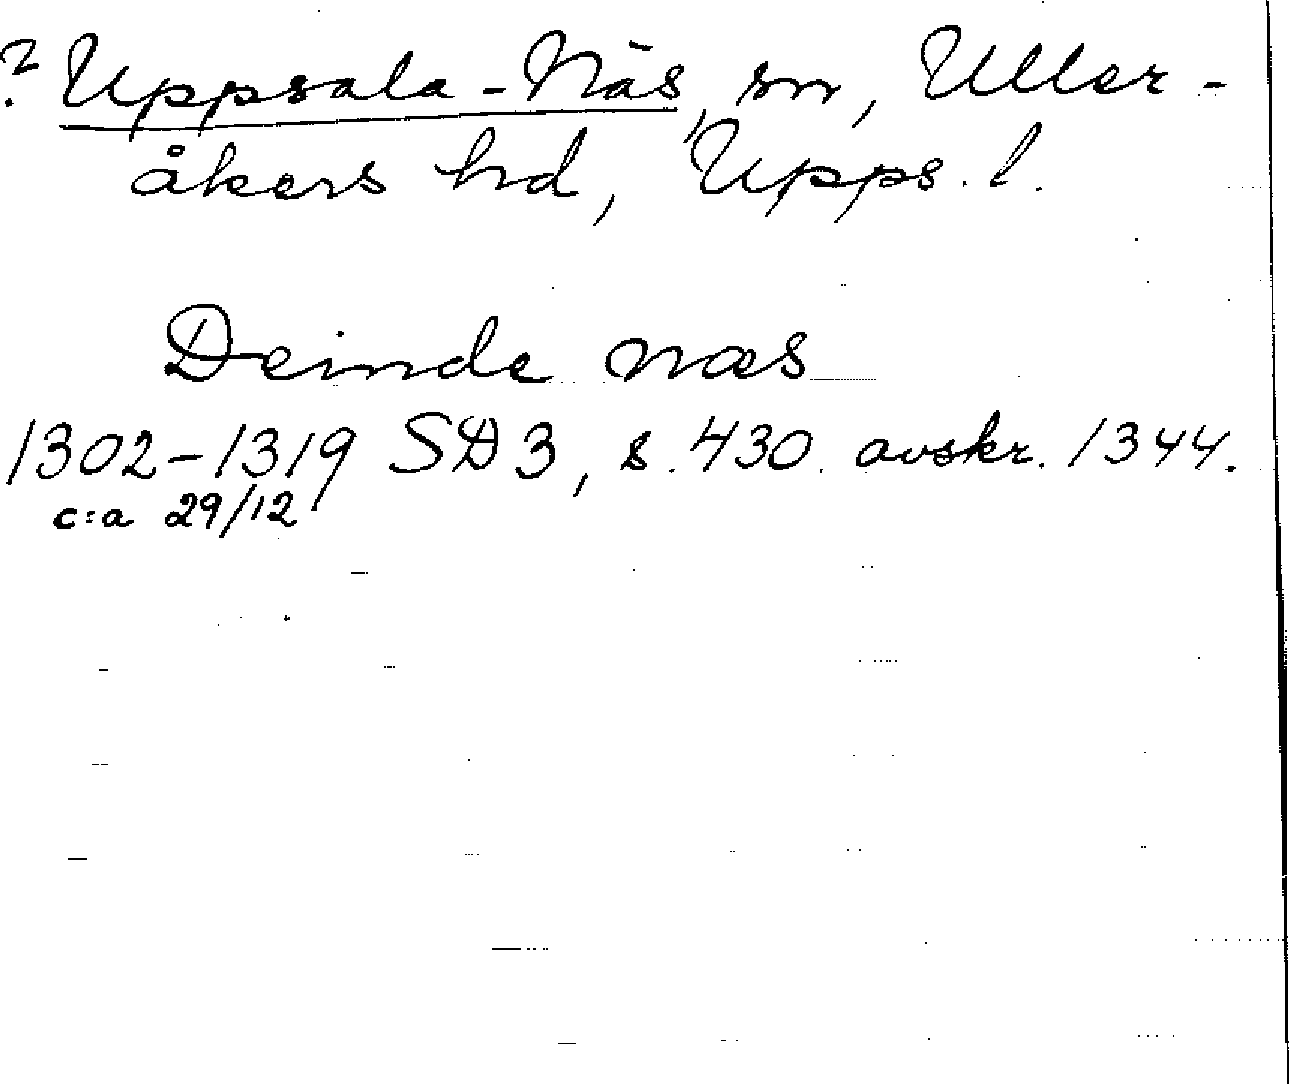 ? Uppsala-Näs, sn, Uller-
åkers hd, Upps. l.
Deinde næs
1302-1319 SD3, s. 430. avskr. 1344.
c:a 29/12